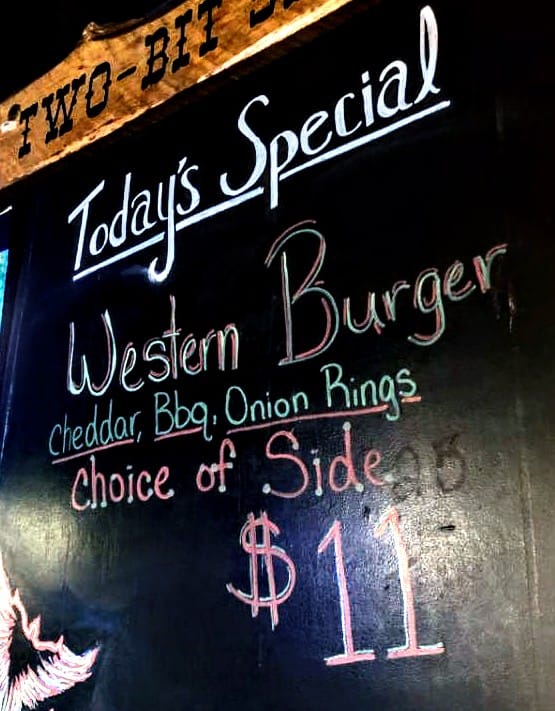 TWO-BIT
Today's Special
Western Burger
Cheddar, Bbq, Onion Rings
Choice of Side
$11